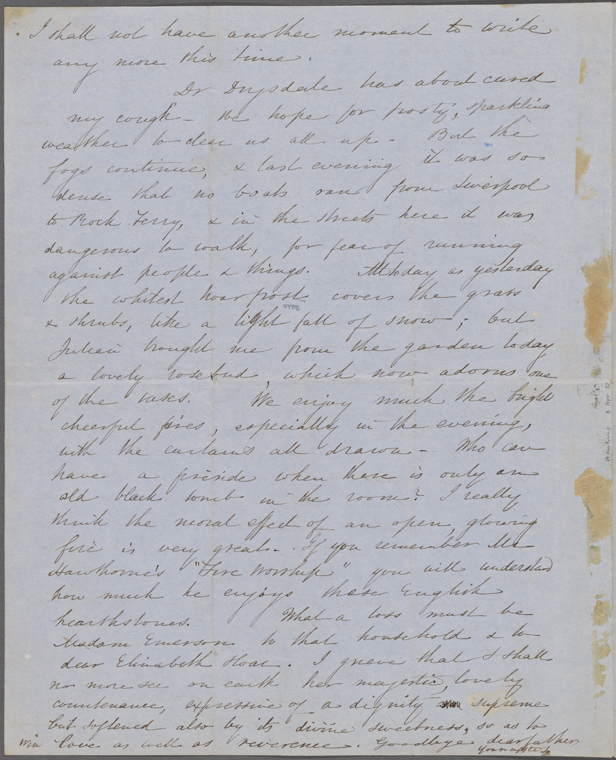 I shall not have another moment to write
any more this time.
Dr Drysdale has about cured
my cough - We hope for frosty, sparkling
weather to clear us all up - But the
fogs continue, & last evening it was so
dense that no boats ran from Liverpool
to Rock Ferry, & in the streets here it was
dangerous to walk, for fear of running
against people & things. All today as yesterday
the whitest hoarfrost covers the grass
& shrubs, like a light fall of snow; but
Julian brought me from the garden today
a lovely rosebud, which now adorns one
of the vases. We enjoy much the bright
cheerful fires, especially in the evening,
with the curtains all drawn - Who can
have a fireside when there is only an
old black tomb in the room? I really
think the moral effect of an open, glowing
fire is very great. If you remember Mr
Hawthorne's "Fire Worship" you will understand
how much he enjoys these English
hearthstones. What a loss must be
Madam Emerson to that household & to
dear Elizabeth Hoar. I grieve that I shall
no more see on earth her majestic, lovely
countenance, expressive of a dignity supreme
but softened also by its divine sweetness, so as to
win love as well as reverence. Goodbye dear father